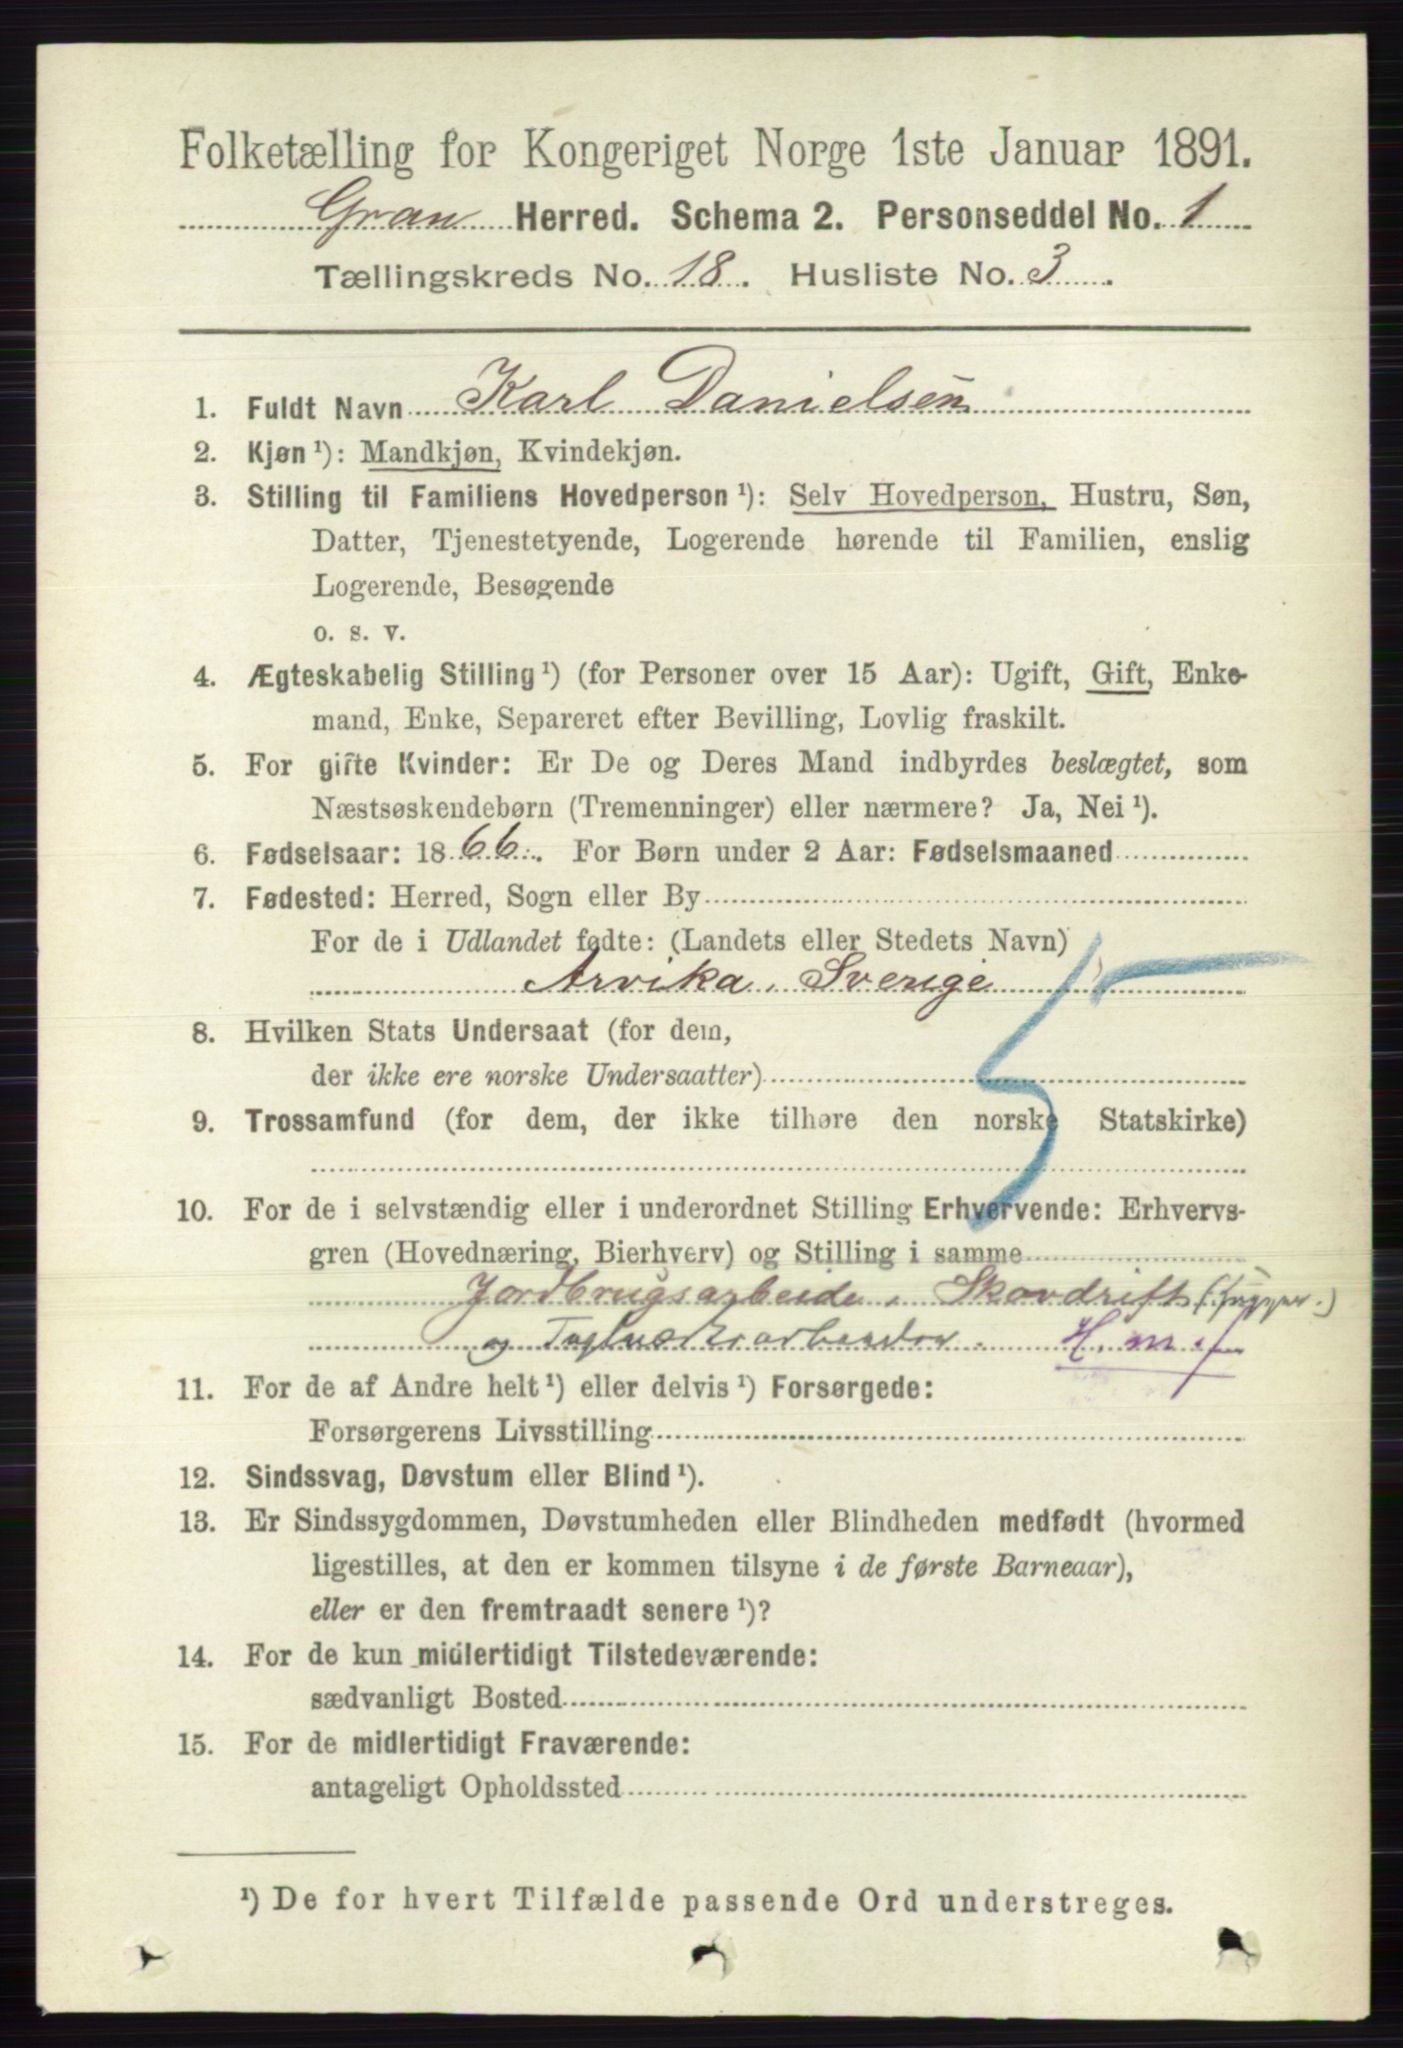 Folketælling for Kongeriget Norge 1ste Januar 1891.
Gran Herred. Schema 2. Personseddel No. 1
Tællingskreds No. 18. Husliste No. 3.
1. Fuldt Navn Karl Danielsen
2. Kjøn ¹): Mandkjøn, Kvindekjøn.
3. Stilling til Familiens Hovedperson ¹): Selv Hovedperson, Hustru, Søn,
Datter, Tjenestetyende, Logerende hørende til Familien, enslig
Logerende, Besøgende
o. s. v.
4. Ægteskabelig Stilling ¹) (for Personer over 15 Aar): Ugift, Gift, Enke-
mand, Enke, Separeret efter Bevilling, Lovlig fraskilt.
5. For gifte Kvinder: Er De og Deres Mand indbyrdes beslægtet, som
Næstsøskendebørn (Tremenninger) eller nærmere? Ja, Nei ¹).
6. Fødselsaar: 1866. For Børn under 2 Aar: Fødselsmaaned
7. Fødested: Herred, Sogn eller By
For de i Udlandet fødte: (Landets eller Stedets Navn)
Arvika, Sverige
5
8. Hvilken Stats Undersaat (for dem,
der ikke ere norske Undersaatter)
9. Trossamfund (for dem, der ikke tilhøre den norske Statskirke)
10. For de i selvstændig eller i underordnet Stilling Erhvervende: Erhvervs-
gren (Hovednæring, Bierhverv) og Stilling i samme
Jordbrugsarbeide, Skovdrift (hugger.)
og Teglværksarbeider. H. m.
11. For de af Andre helt ¹) eller delvis ¹) Forsørgede:
Forsørgerens Livsstilling
12. Sindssvag, Døvstum eller Blind ¹).
13. Er Sindssygdommen, Døvstumheden eller Blindheden medfødt (hvormed
ligestilles, at den er kommen tilsyne i de første Barneaar),
eller er den fremtraadt senere ¹)?
14. For de kun midlertidigt Tilstedeværende:
sædvanligt Bosted
15. For de midlertidigt Fraværende:
antageligt Opholdssted
¹) De for hvert Tilfælde passende Ord understreges.